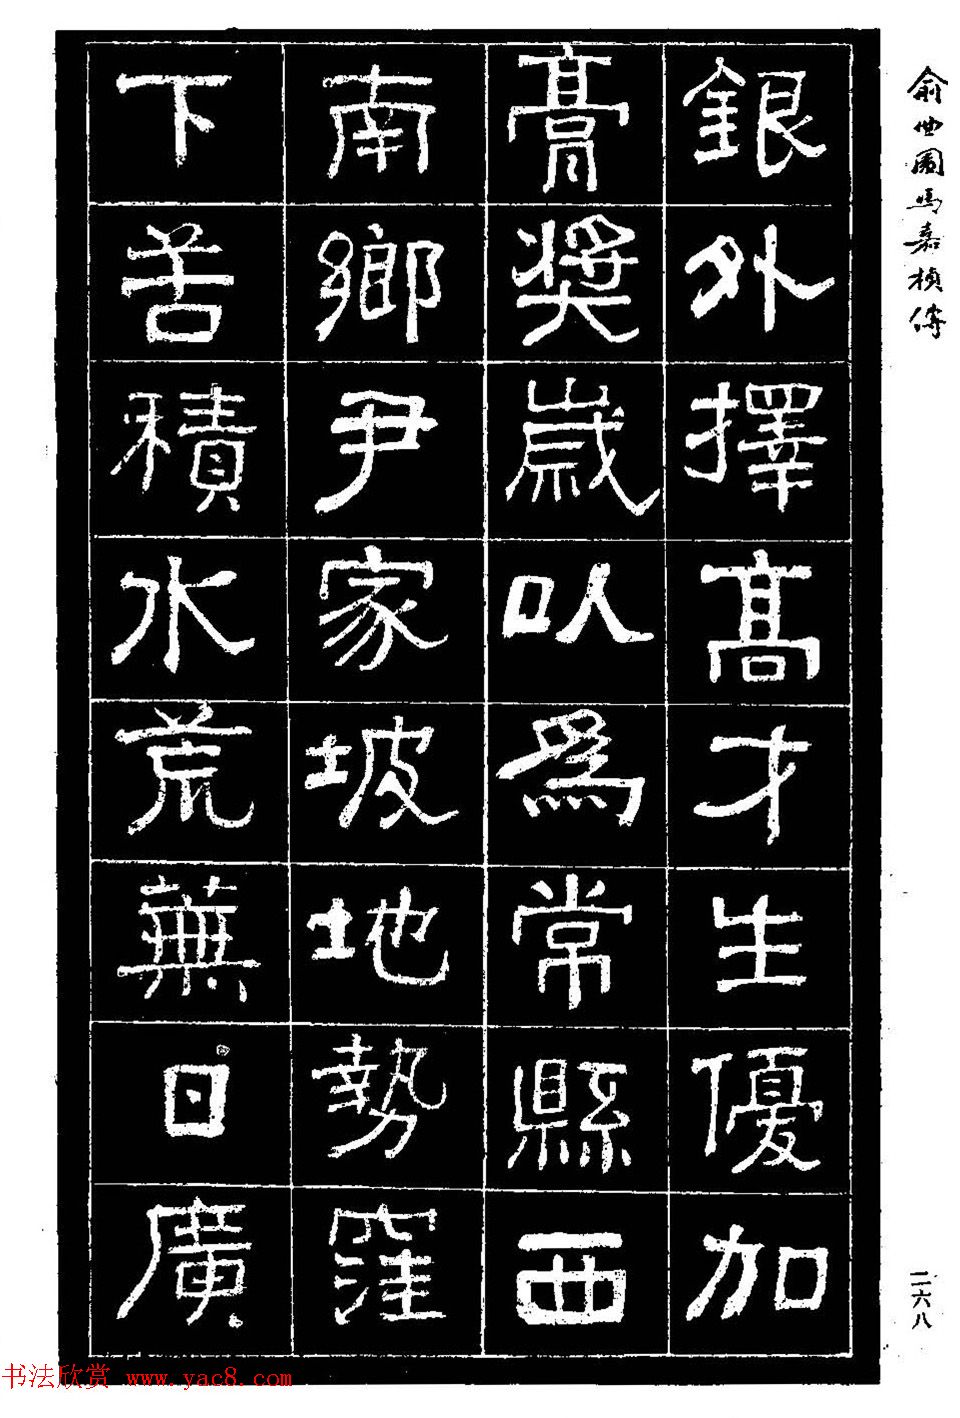 俞曲園馬嘉楨傳
銀外擇高才生優加
膏獎歲以爲常縣西
南鄉尹家坡地勢窪
下苦積水荒蕪日廣
二六八
书法欣赏 www.yac8.com